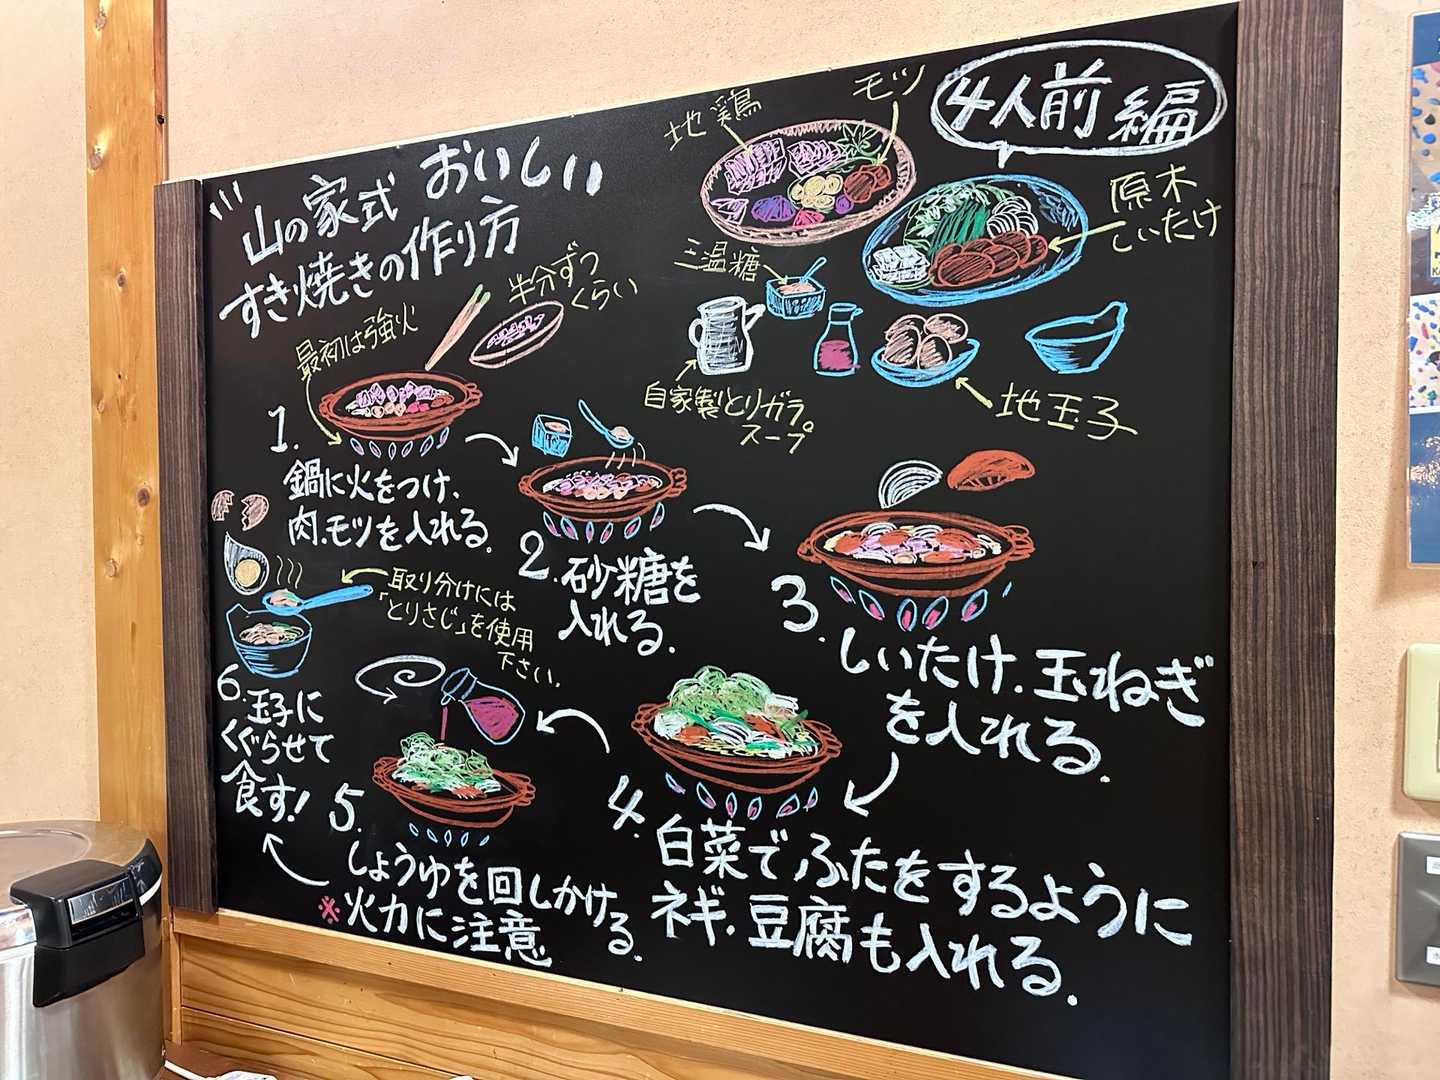 山の家式 おいしい
すき焼きの作り方
4人前編
地鶏
モツ
原木
しいたけ
三温糖
自家製とりガラ
スープ
地玉子
最初は強火
半分ずつ
くらい
1.
鍋に火をつけ、
肉、モツを入れる。
2.砂糖を
入れる。
3.
しいたけ、玉ねぎ
を入れる。
4.
白菜でふたをするように
ネギ、豆腐も入れる。
5.
しょうゆを回しかける。
※火力に注意
取り分けには
「とりさじ」を使用
下さい。
6.玉子に
くぐらせて
食す!